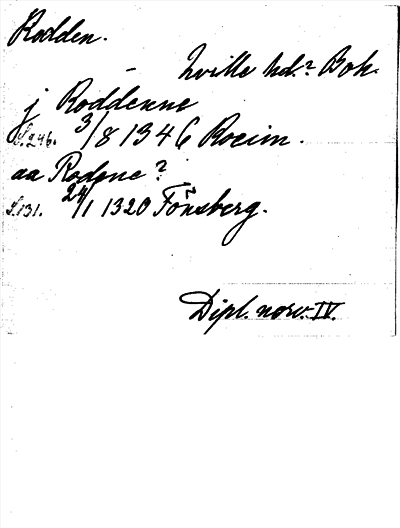 Rodden.
— hville hd.? Boh.
j Roddenne
S.246. 3/8 1346 Rocim.
aa Rodene?
S.131. 24/1 1320 Tönsberg.
Dipl. norv. IV.